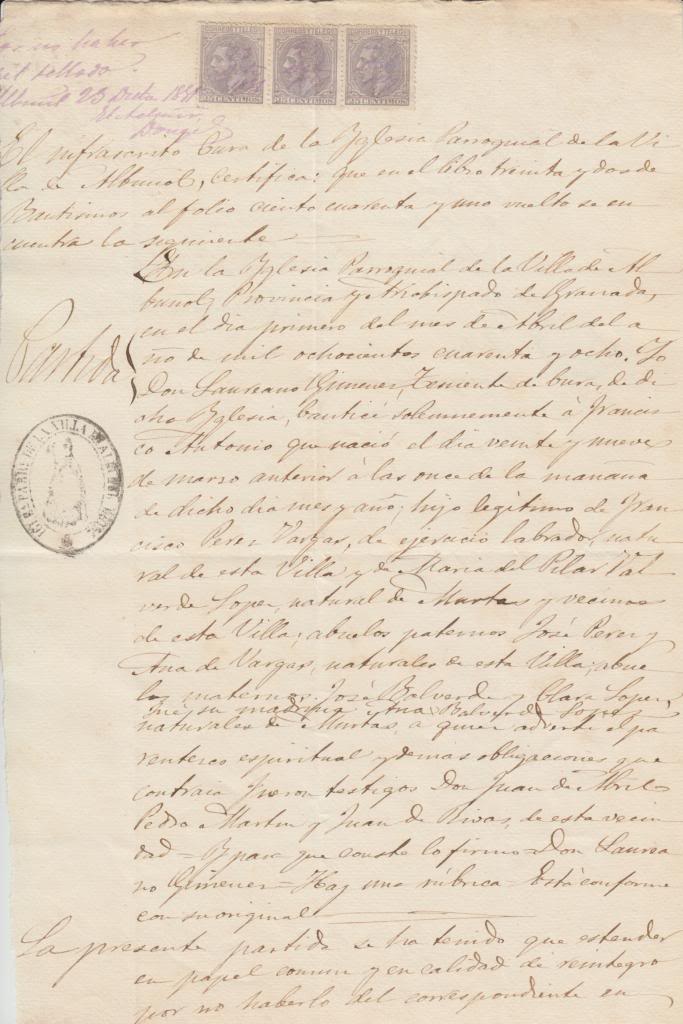 Por no haber
papel sellado
Albuñol 23
CORREOS Y TELEGS
CORREOS Y TELEGS
CORREOS Y TELEGS
25 CENTIMOS
25 CENTIMOS
25 CENTIMOS
El infrascrito Cura de la Yglesia Parroquial de la Vi
lla de Albuñol, certifica: que en el libro treinta y dos de
Bautismos al folio ciento cuarenta y uno vuelto se en
cuentra la siguiente
Partida
En la Yglesia Parroquial de la Villa de Al
buñol, Provincia y Arzobispado de Granada,
en el dia primero del mes de Abril del a
ño de mil ochocientos cuarenta y ocho. Yo
Don Laureano Gimenez, Teniente de Cura, de di
cha Yglesia, bauticé solemnemente á Francis
co Antonio que nació el dia veinte y nueve
de marzo anterior á las once de la mañana
de dicho dia mes y año; hijo legitimo de Fran
cisco Perez Vargas, de ejercicio labrador, natu
ral de esta Villa y de Maria del Pilar Val
verde Lopez, natural de Murtas y vecinos
de esta Villa; abuelos paternos José Perez y
Ana de Vargas, naturales de esta Villa; abue
los maternos José Balverde y Clara Lopez,
Fué su madrina Ana Balverde Lopez
naturales de Murtas, a quien advertí el pa
rentesco espiritual y demas obligaciones que
contraia fueron testigos Don Juan de
Pedro Martin y Juan de Rivas, de esta vecin
dad = Y para que conste lo firmo = Don Laurea
no Gimenez = Hay una rúbrica = Está conforme
con su original
La presente partida se ha tenido que estender
en papel comun y en calidad de reintegro
por no haberlo del correspondiente en